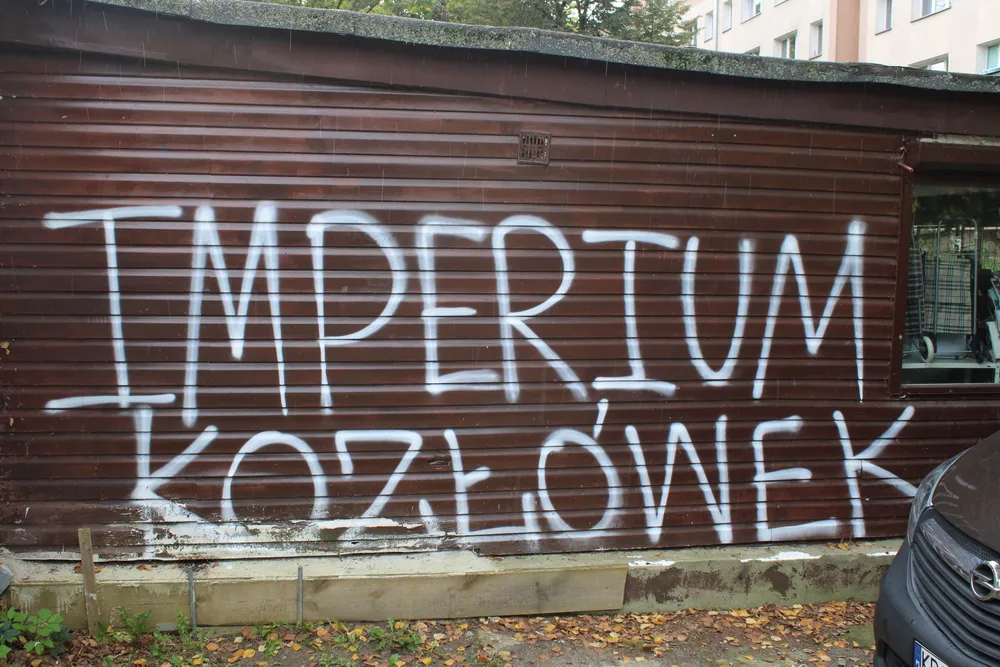 IMPERIUM
KOZŁÓWEK